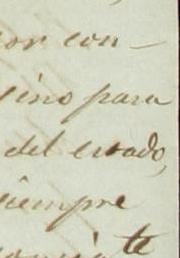 por con-
sino para
del estado,
siempre
te